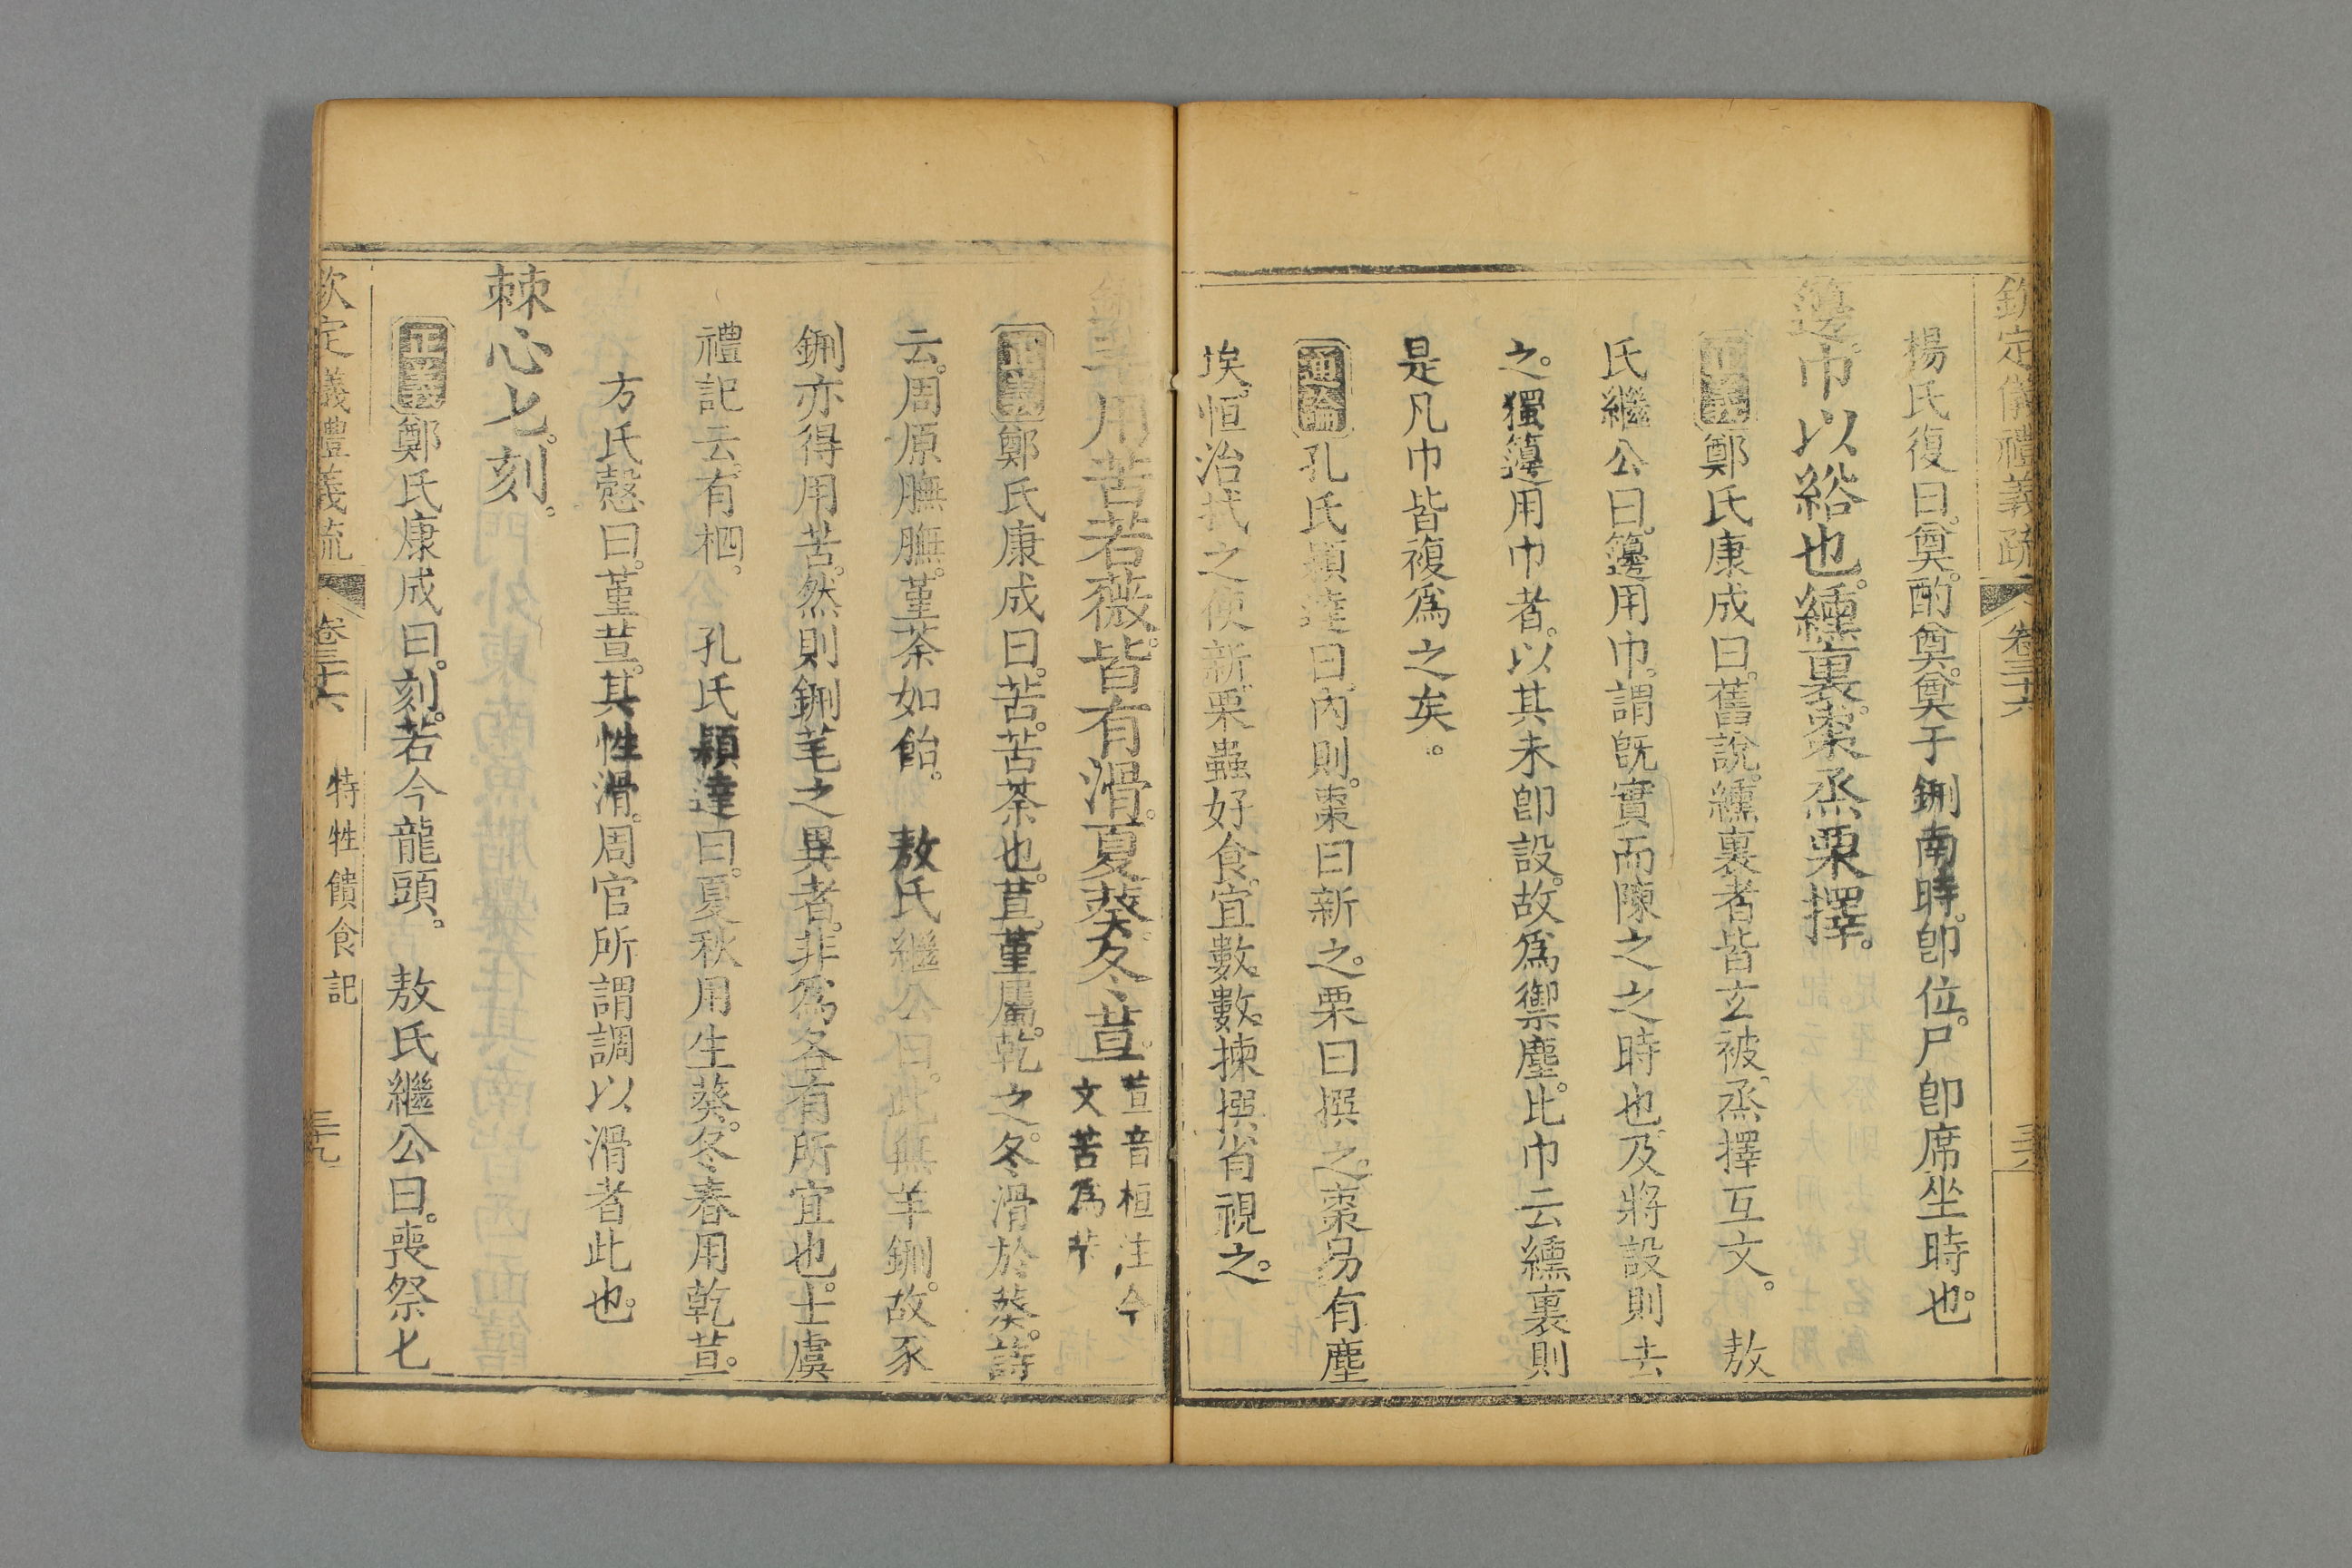 欽定儀禮義疏 卷三十六
楊氏復曰。奠。酌奠。奠于鉶南時。卽位。尸卽席坐時也。
籩。巾以綌也。纁裏。棗烝栗擇。
正義鄭氏康成曰。舊說。纁裏者皆玄被。烝擇互文。 敖
氏繼公曰。籩用巾。謂旣實而陳之之時也。及將設則去
之。獨籩用巾者。以其未卽設。故爲禦塵。此巾云纁裏則
是凡巾皆複爲之矣。
通論孔氏穎達曰。內則。棗曰新之。栗曰撰之。棗易有塵
埃。恒治拭之使新。栗蟲好食。宜數數揀撰省視之。
鉶芼用苦若薇。皆有滑。夏葵冬荁。
荁音桓注今
文苦爲苄
正義鄭氏康成曰。苦。苦荼也。荁。堇屬。乾之。冬滑於葵。詩
云。周原膴膴。堇荼如飴。 敖氏繼公曰。此無羊鉶。故豕
鉶亦得用苦。然則鉶芼之異者。非爲各有所宜也。士虞
禮記云。有柶。 孔氏穎達曰。夏秋用生葵。冬春用乾荁。
方氏慤曰。堇荁。其性滑。周官所謂調以滑者此也。
棘心匕。刻。
正義鄭氏康成曰。刻。若今龍頭。 敖氏繼公曰。喪祭匕
欽定儀禮義疏 卷三十六 特牲饋食記 三十九